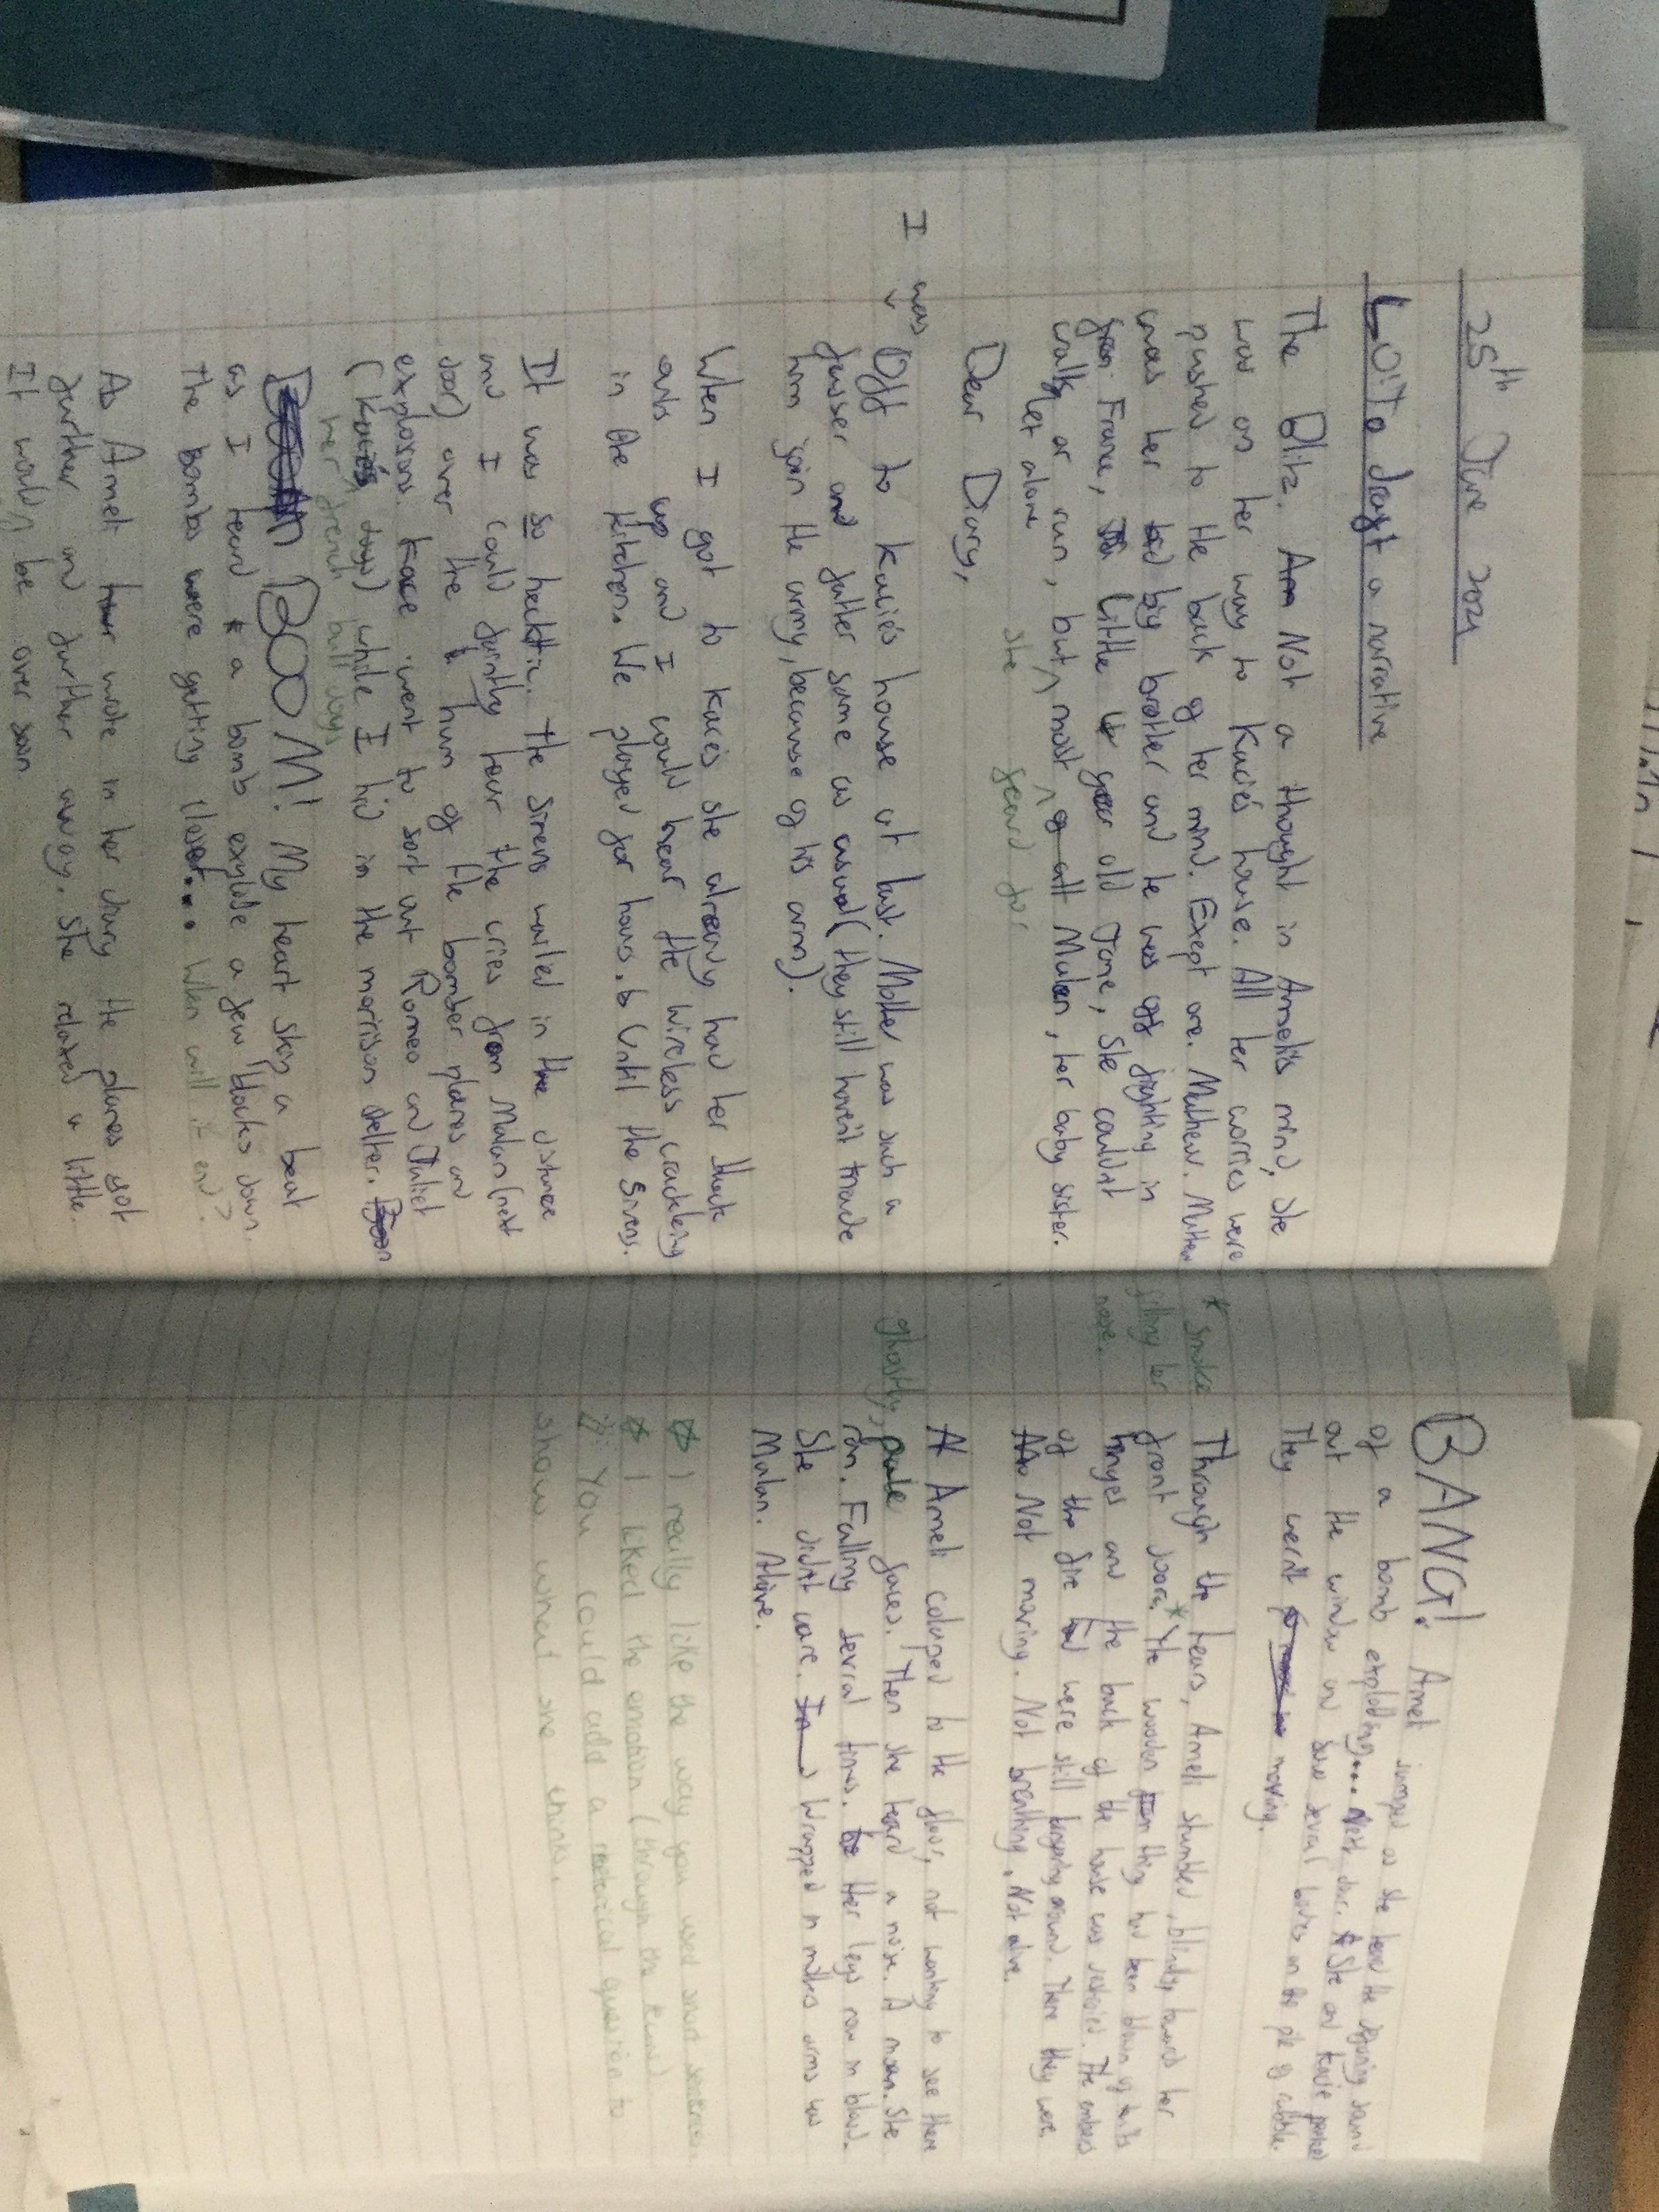 25th June 2021
LO: To draft a narrative
The Blitz. Not a thought in Ameli's mind, she
was on her way to Kacie's house. All her worries were
pushed to the back of her mind. Exept one. Mathew. Mathew
was her big brother and he was off fighting in
France, Little year old Jane, She couldnt
walk or run, but most of all Mulan, her baby sister.
let alone
she feard for
Dear Diary,
I was
Off to Kacie's house at last. Mother was such a
fusser and father same as usual (they still haven't made
him join the army, because of his arm).
When I got to Kacie's she already had her black
outs up and I could hear the wireless crackling
in the kitchen. We played for hours. Until the sirens.
It was so hecktic. The sirens wailed in the distance
and I could faintly hear the cries from Mulan (next
door) over the hum of the bomber planes and
explosions. Kacie went to sort out Romeo and Juliet
(Kacie's dogs) while I hid in the morrison shelter.
her french bull dogs
BOOM! My heart skip a beat
as I heard a bomb explode a few blocks down.
The bombs were getting closer... When will it end?
As Ameli wrote in her diary the planes got
further and further away. She relaxed a little.
It would be over soon
BANG! Ameli jumped as she heard the defining sound
of a bomb exploding... Next door. She and Kacie peered
out the window and saw sevral bodies on the pile of rubble.
They wernt moving.
Through the tears, Ameli stumbled, blindly, towards her
front door.* The wooden thing had been blown of its
hinges and the back of the house was
of the fire were still lingering around. There they were.
Not moving. Not breathing. Not alive.
* smoke
filling her
nose.
Ameli colapsed to the floor, not wanting to see there
ghostly, pale faces. Then she heard a noise. A moan. She
ran. Falling sevral times. Her legs raw in blood.
She didnt care. Wrapped in mothers arms was
Mulan. Alive.
I really like the way you used short sentences.
I liked the emotion (through the tears)
You could add a retorical question to
show what she thinks.